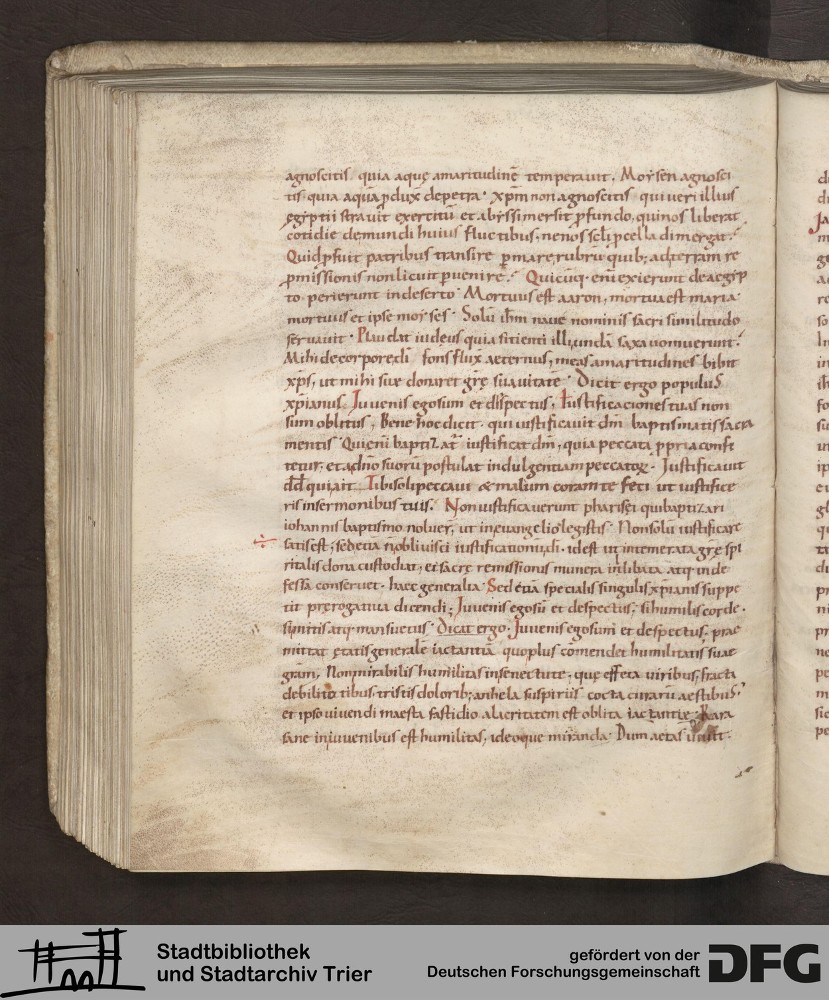 agnoscitis quia aquę amaritudinē temperauit. Moysen agnosci
tis quia aquā ꝓdux̄ de petra· xp̄m non agnoscitis qui ueri illius
ęgyptii strauit exercitū et abyssi mersit ꝓfundo, qui nos liberat
cotidie de mundi huius fluctibus, ne nos scl̄i ꝓcella dimergat?
Quid ꝓfuit patribus transire ꝑ mare rubrū quib; ad terram re
ꝓmissionis non licuit ꝑuenire? Quicūq· eni exierunt de aegyp
to perierunt in deserto· Mortuus est aaron, mortua est maria·
mortuus et ipse moyses· Solū ih̄m naue nominis sacri similitudo
seruauit· Plaudat iudeus quia sitienti illi undā saxa uomuerunt?
Mihi de corpore dī fons flux̄ aeternus, meas amaritudines bibit
xp̄s, ut mihi suae donaret grę̄ suauitatē· Dicit ergo populus
xp̄ianus. Iuuenis ego sum et dispectus, Iustificaciones tuas non
sum oblitus, Bene hoc dicit· qui iustificauit dm̄ baptismatis sacra
mentis· Qui eni baptizat̄ iustificat dm̄, quia peccata ꝓpria confi
tetur; et a dn̄o suorū postulat indulgentiam peccatoꝝ· Iustificauit
dd̄ quia ait Tibi soli peccaui & malum coram te feci ut iustifice
ris in sermonibus tuis. Non iustificauerunt pharisei qui baptizari
iohannis baptismo noluer̄, ut in euangelio legistis· Non solū iustificare
satis est, sed etiā n̄ obliuisci iustificationū dī· id est ut intemerata grę̄ spi
ritalis dona custodiat, et sacrę remissionis munera inlibata atq· inde
fessa conseruet· haec generalia· Sed etiā specialis singulis xp̄ianis suppe
tit pręrogatiua dicendi; Iuuenis ego sū et despectus; si humilis corde·
si mitis atq· mansuetus· Dicat ergo. Iuuenis ego sum et despectus, prae
mittat ętatis generalē iactantiā quo plus cōmendet humilitatis suae
grām, Non mirabilis humilitas in senectute· quę effeta uiribus, fracta
debilitatibus, tristis dolorib; anhela suspiriis cocta curarū aestibus?
et ipso uiuendi maesta fastidio alacritatem est oblita iactantie· Rara
sane in iuuenibus est humilitas, ideoque miranda· Dum aetas uiuit·
Stadtbibliothek
und Stadtarchiv Trier
gefördert von der
Deutschen Forschungsgemeinschaft
DFG